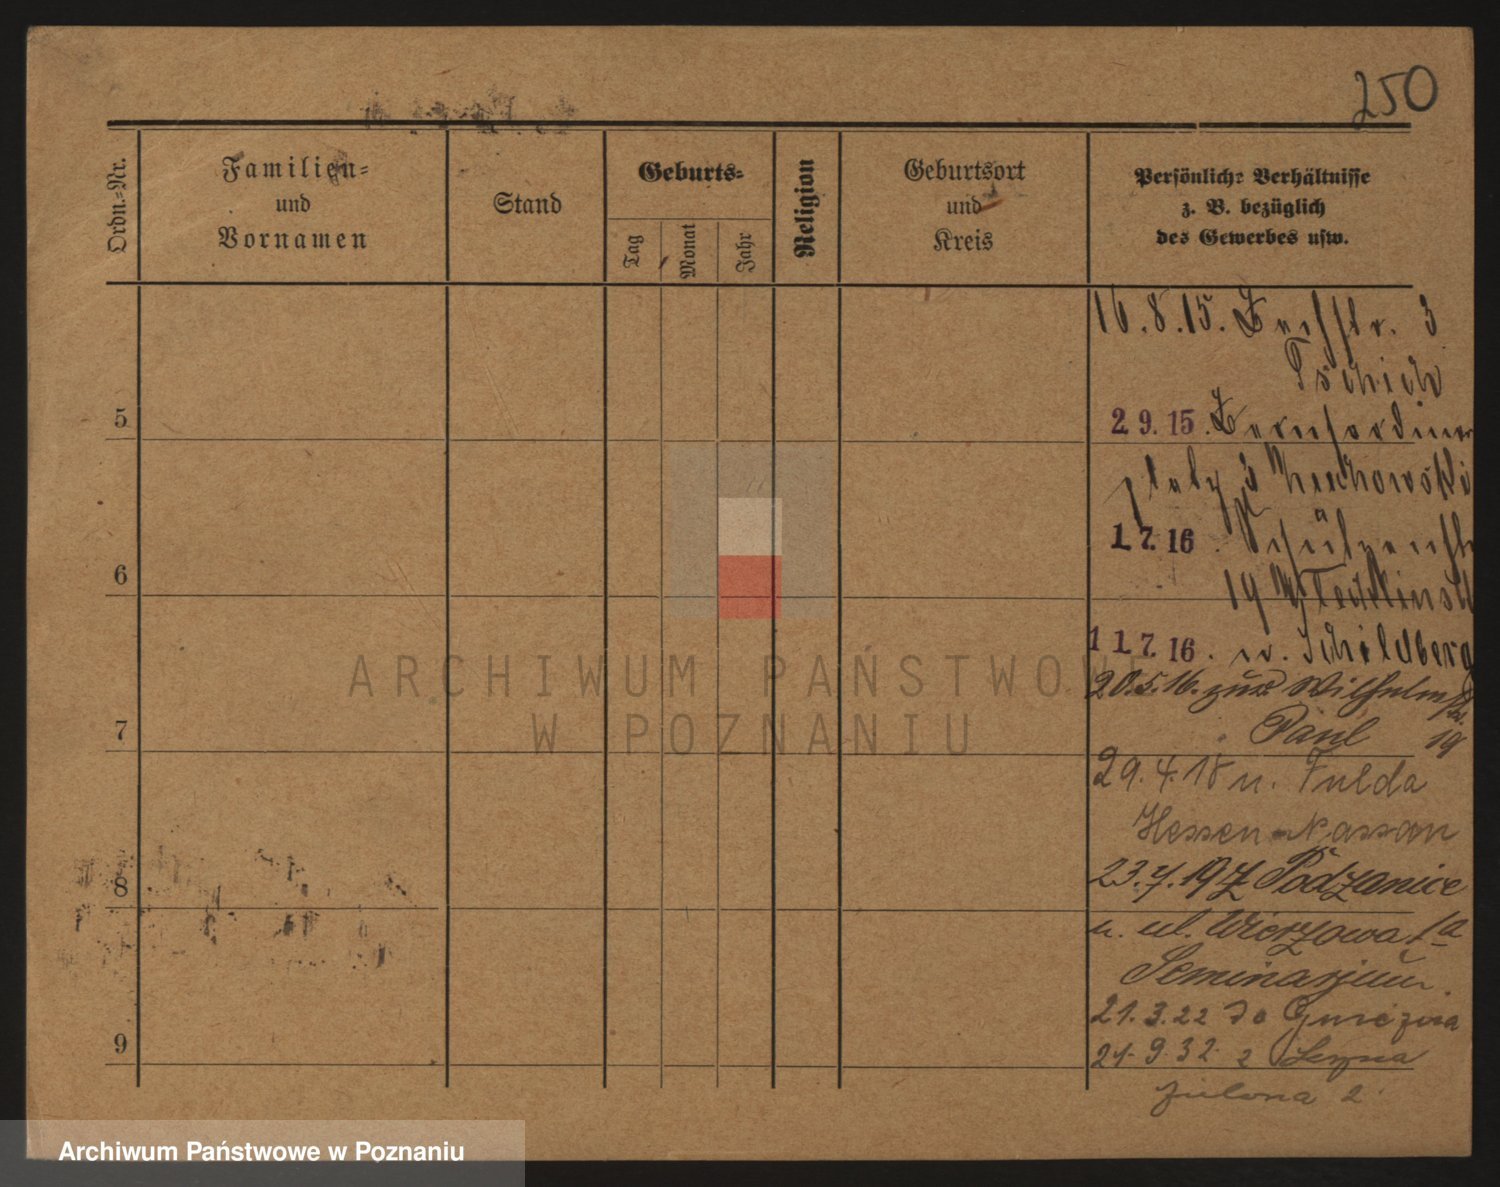 250
Ordn.-Nr.
Familien-
und
Vornamen
Stand
Geburts-
Tag
Monat
Jahr
Religion
Geburtsort
und
Kreis
Persönliche Verhältnisse
z. B. bezüglich
des Gewerbes usw.
16.8.15. 3
5
2 9. 15.
6
1. 7. 16. Schützenstr
19
1 1. 7. 16. n. Schildberg
20.5.16. zur Wilhelmstr.
Paul 19
7
29.4.18 n. Fulda
Hessen-Nassau
23.7.19 z Podzamcze
8
u. ul. Wieżowa
Seminarjum.
21.3.22 do Gniezna
9
21.9.32 z Leszna
Zielona 2
ARCHIWUM PAŃSTWOWE
W POZNANIU
Archiwum Państwowe w Poznaniu